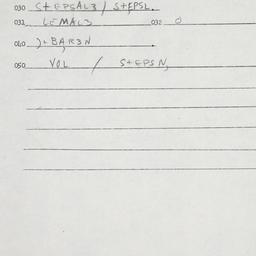 030 St EPSAL3 / StEPSL.
031 LEMAL3 032 O
040 J+BAR3N
050 VOL / St EPS N,